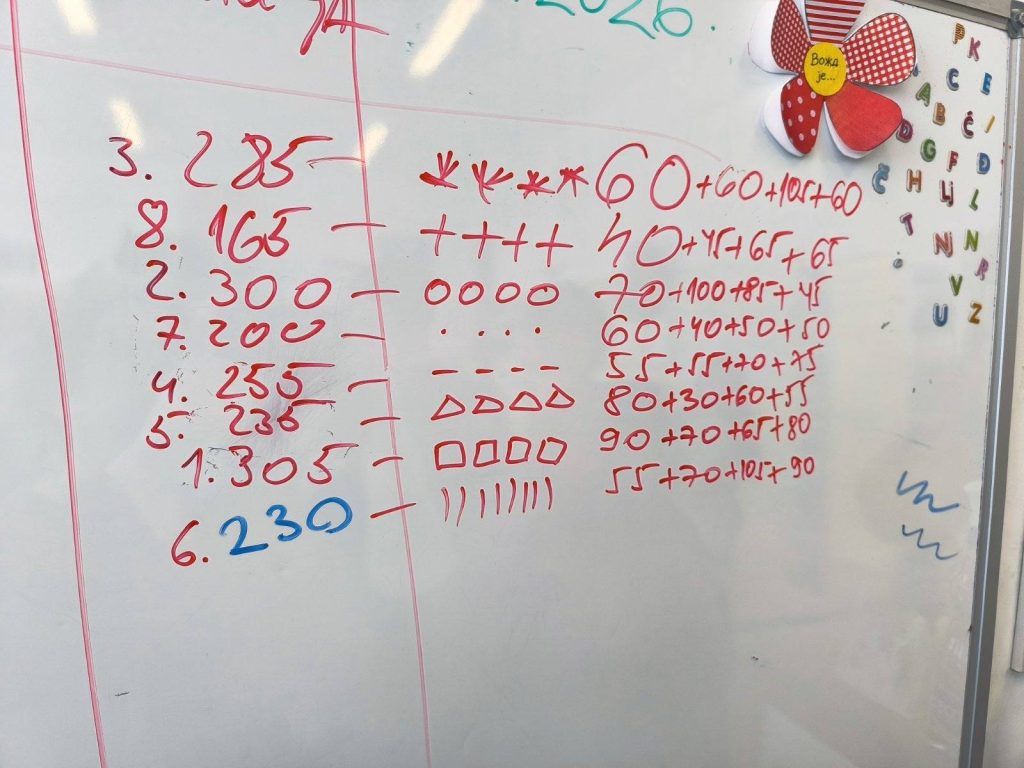 2026.
Вожд
је...
3. 285 — 60+60+105+60
8. 165 — ++++ 40+45+65+65
2. 300 — 0000 70+100+85+45
7. 200 — . . . . 60+40+50+50
4. 255 — - - - - 55+55+70+75
5. 235 — △△△△ 80+30+60+55
1. 305 — □□□□ 90+70+65+80
6. 230 — )))))))) 55+70+105+90
P K
C E
A B Č /
D G F Đ
Č H Lj L
T Nj N
R
V
U Z